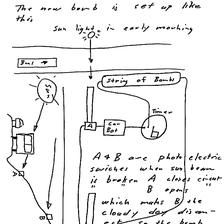 The new bomb is set up like
this
sun light in early morning
Bus
String of Bombs
Sun
Timer
A
Car
Bat
B
A & B are photo electric
swiches when sun beam
is broken A closes circut
B opens
which B the
cloudy day
so the bomb